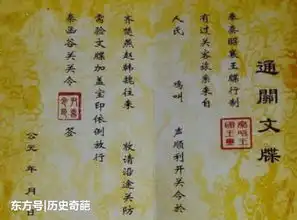 通關文牒
奉秦昭襄王牒行制
有过关客旅乘来自
人氏 鸣叫 声顺利开关今於
齐楚燕赵韩魏往来 敬请沿途关防
需验文牒加盖宝印依例放行
秦函谷关关令 签
公元 年 月 日
东方号|历史奇葩